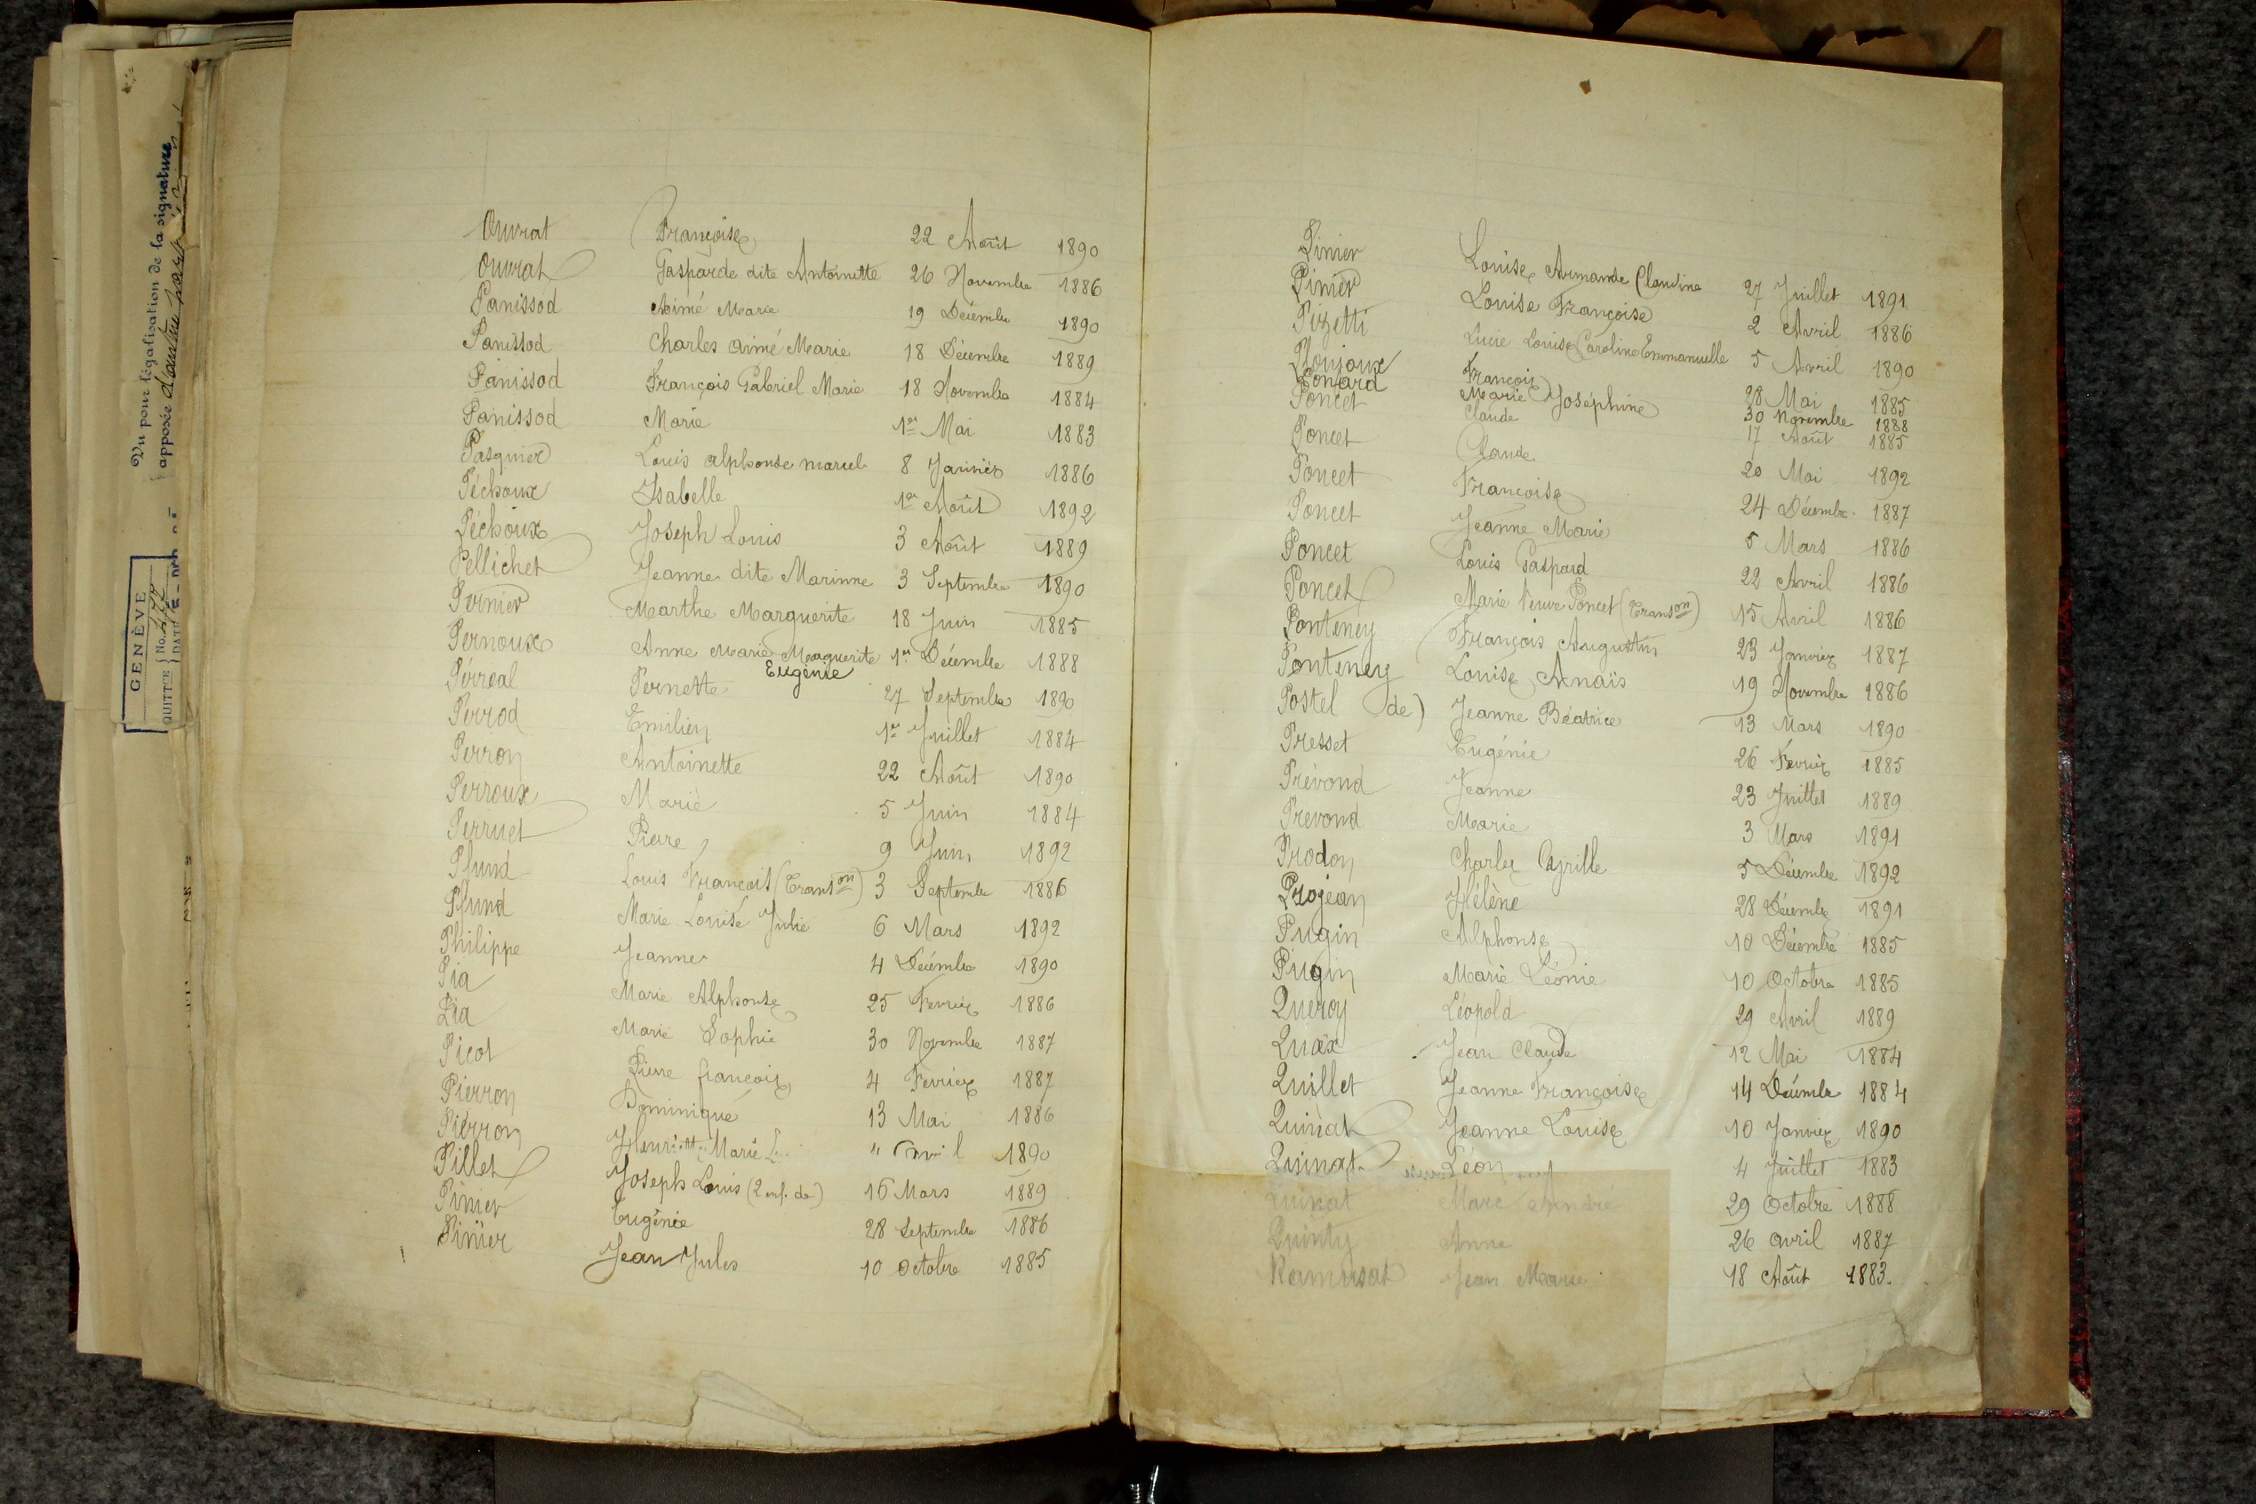 Vu pour légalisation de la signature
apposée d'autre part
GENÈVE
QUITT'E No.
DATE
Ouvrat Françoise 22 Août 1890
Ouvrat Gasparde dite Antoinette 26 Novembre 1886
Panissod Aimé Marie 19 Décembre 1890
Panissod Charles Aimé Marie 18 Décembre 1889
Panissod François Gabriel Marie 18 Novembre 1884
Panissod Marie 1er Mai 1883
Pasquier Louis Alphonse Marcel 8 Janvier 1886
Péchoux Isabelle 1er Août 1892
Péchoux Joseph Louis 3 Août 1889
Pellichet Jeanne dite Marinne 3 Septembre 1890
Pernier Marthe Marguerite 18 Juin 1885
Pernoux Anne Marie Marguerite 1er Décembre 1888
Eugénie
Perréal Pernette 27 Septembre 1890
Perrod Emilien 1er Juillet 1884
Perron Antoinette 22 Août 1890
Perroux Marie 5 Juin 1884
Perruet Pierre 9 Juin 1892
Pfund Louis François (Transon) 3 Septembre 1886
Pfund Marie Louise Julie 6 Mars 1892
Philippe Jeanne 4 Décembre 1890
Pia Marie Alphonse 25 Fevrier 1886
Pia Marie Sophie 30 Novembre 1887
Picot Pierre françois 4 Fevrier 1887
Pierron Dominique 13 Mai 1886
Pierron Marie " Avril 1890
Pillet Joseph Louis (2 enf. de) 16 Mars 1889
Pinier Eugénie 28 Septembre 1886
Pinier Jean Jules 10 Octobre 1885
Pinier Louise Armande Claudine 27 Juillet 1891
Pinier Louise Françoise 2 Avril 1886
Pizetti Lucie Louise Caroline Emmanuelle 5 Avril 1890
Ploujoux François 28 Mai 1885
Ponard Marie Joséphine 30 Novembre 1888
Poncet Claude 17 Août 1885
Poncet Claude 20 Mai 1892
Poncet Françoise 24 Décembre 1887
Poncet Jeanne Marie 5 Mars 1886
Poncet Louis Gaspard 22 Avril 1886
Poncet Marie Veuve Poncet (Transon) 15 Avril 1886
Ponteney François Augustin 23 Janvier 1887
Ponteney Louise Anaïs 19 Novembre 1886
Postel (de) Jeanne Béatrice 13 Mars 1890
Presset Eugénie 26 Fevrier 1885
Prévond Jeanne 23 Juillet 1889
Prevond Marie 3 Mars 1891
Prodon Charles Cyrille 5 Décembre 1892
Projean Hélène 28 Décembre 1891
Pugin Alphonse 10 Décembre 1885
Pugin Marie Léonie 10 Octobre 1885
Queroy Léopold 29 Avril 1889
Quaix Jean Claude 12 Mai 1884
Quillet Jeanne Françoise 14 Décembre 1884
Quinat Jeanne Louise 10 Janvier 1890
Quinat Léon 4 Juillet 1883
Quinat Marc André 29 Octobre 1888
Quinty Anna 26 avril 1887
Ramusat Jean Marie 18 Août 1883.